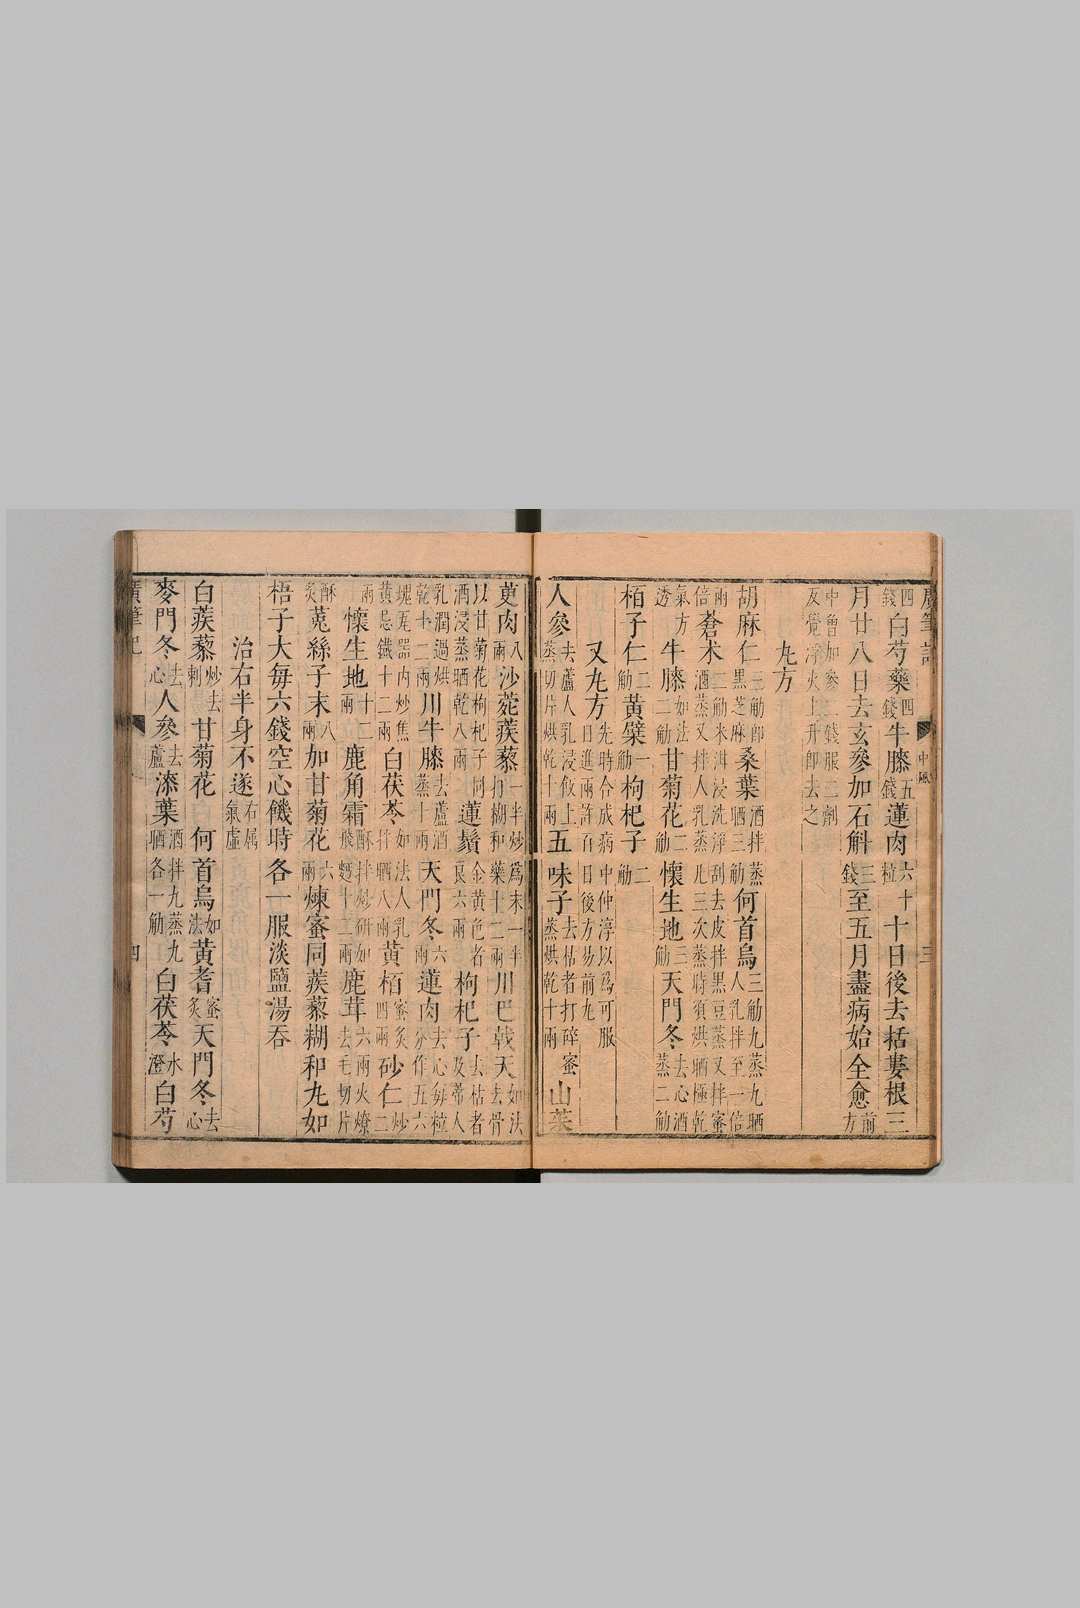 廣筆記 中風 三
四錢白芍藥四錢牛膝五錢蓮肉六十粒十日後去括蔞根三
月廿八日去玄參加石斛三錢至五月盡病始全愈前方
中曾加參二錢服二劑
反覺浮火上升即去之
丸方
胡麻仁三觔即黑芝麻桑葉酒拌蒸晒三觔何首烏三觔九蒸九晒人乳拌至一倍
兩倍蒼朮二觔米泔浸洗淨刮去皮拌黑豆蒸又拌蜜酒蒸又拌人乳蒸凡三次蒸時須烘晒極乾
氣方透牛膝如法二觔甘菊花二觔懷生地三觔天門冬去心酒蒸二觔
栢子仁二觔黃蘗一觔枸杞子二觔
又丸方先時合成病中仲淳以爲可服日進兩許百日後方易前丸
人參去蘆人乳浸飯上蒸切片烘乾十兩五味子去枯者打碎蜜蒸烘乾十兩山茱
萸肉八兩沙苑蒺藜一半炒爲末一半打糊和藥十二兩川巴戟天如法去骨
以甘菊花枸杞子同酒浸蒸晒乾八兩蓮鬚金黃色者良六兩枸杞子去枯者及蒂人
乳潤過烘乾十二兩川牛膝去蘆酒蒸十兩天門冬六兩蓮肉去心每粒分作五六
塊瓦器內炒焦黃忌鐵十二兩白茯苓如法人乳拌晒八兩黃栢蜜炙四兩砂仁炒二
兩懷生地十二兩鹿角霜酥拌炒研如飛麵十二兩鹿茸六兩火燎去毛切片
酥炙菟絲子末八兩加甘菊花六兩煉蜜同蒺藜糊和丸如
梧子大每六錢空心饑時各一服淡鹽湯吞
治右半身不遂右属氣虛
白蒺藜炒去刺甘菊花 何首烏如法黃耆蜜炙天門冬去心
麥門冬去心人參去蘆漆葉酒拌九蒸九晒各一觔白茯苓水澄白芍
廣筆記 四